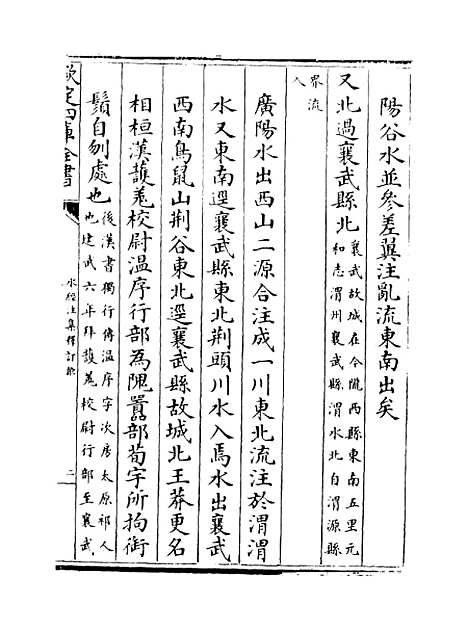 陽谷水並參差翼注亂流東南出矣
又北過襄武縣北襄武故城在今隴西縣東南五里元
和志渭州襄武縣渭水北自渭源縣
界流
入
廣陽水出西山二源合注成一川東北流注於渭渭
水又東南逕襄武縣東北荆頭川水入焉水出襄武
西南鳥鼠山荆谷東北逕襄武縣故城北王莽更名
相桓漢護羌校尉温序行部為隗囂部荀宇所拘銜
鬚自刎處也後漢書獨行傳温序字次房太原祁人
也建武六年拜護羌校尉行部至襄武
欽定四庫全書
水經注集釋訂訛
二